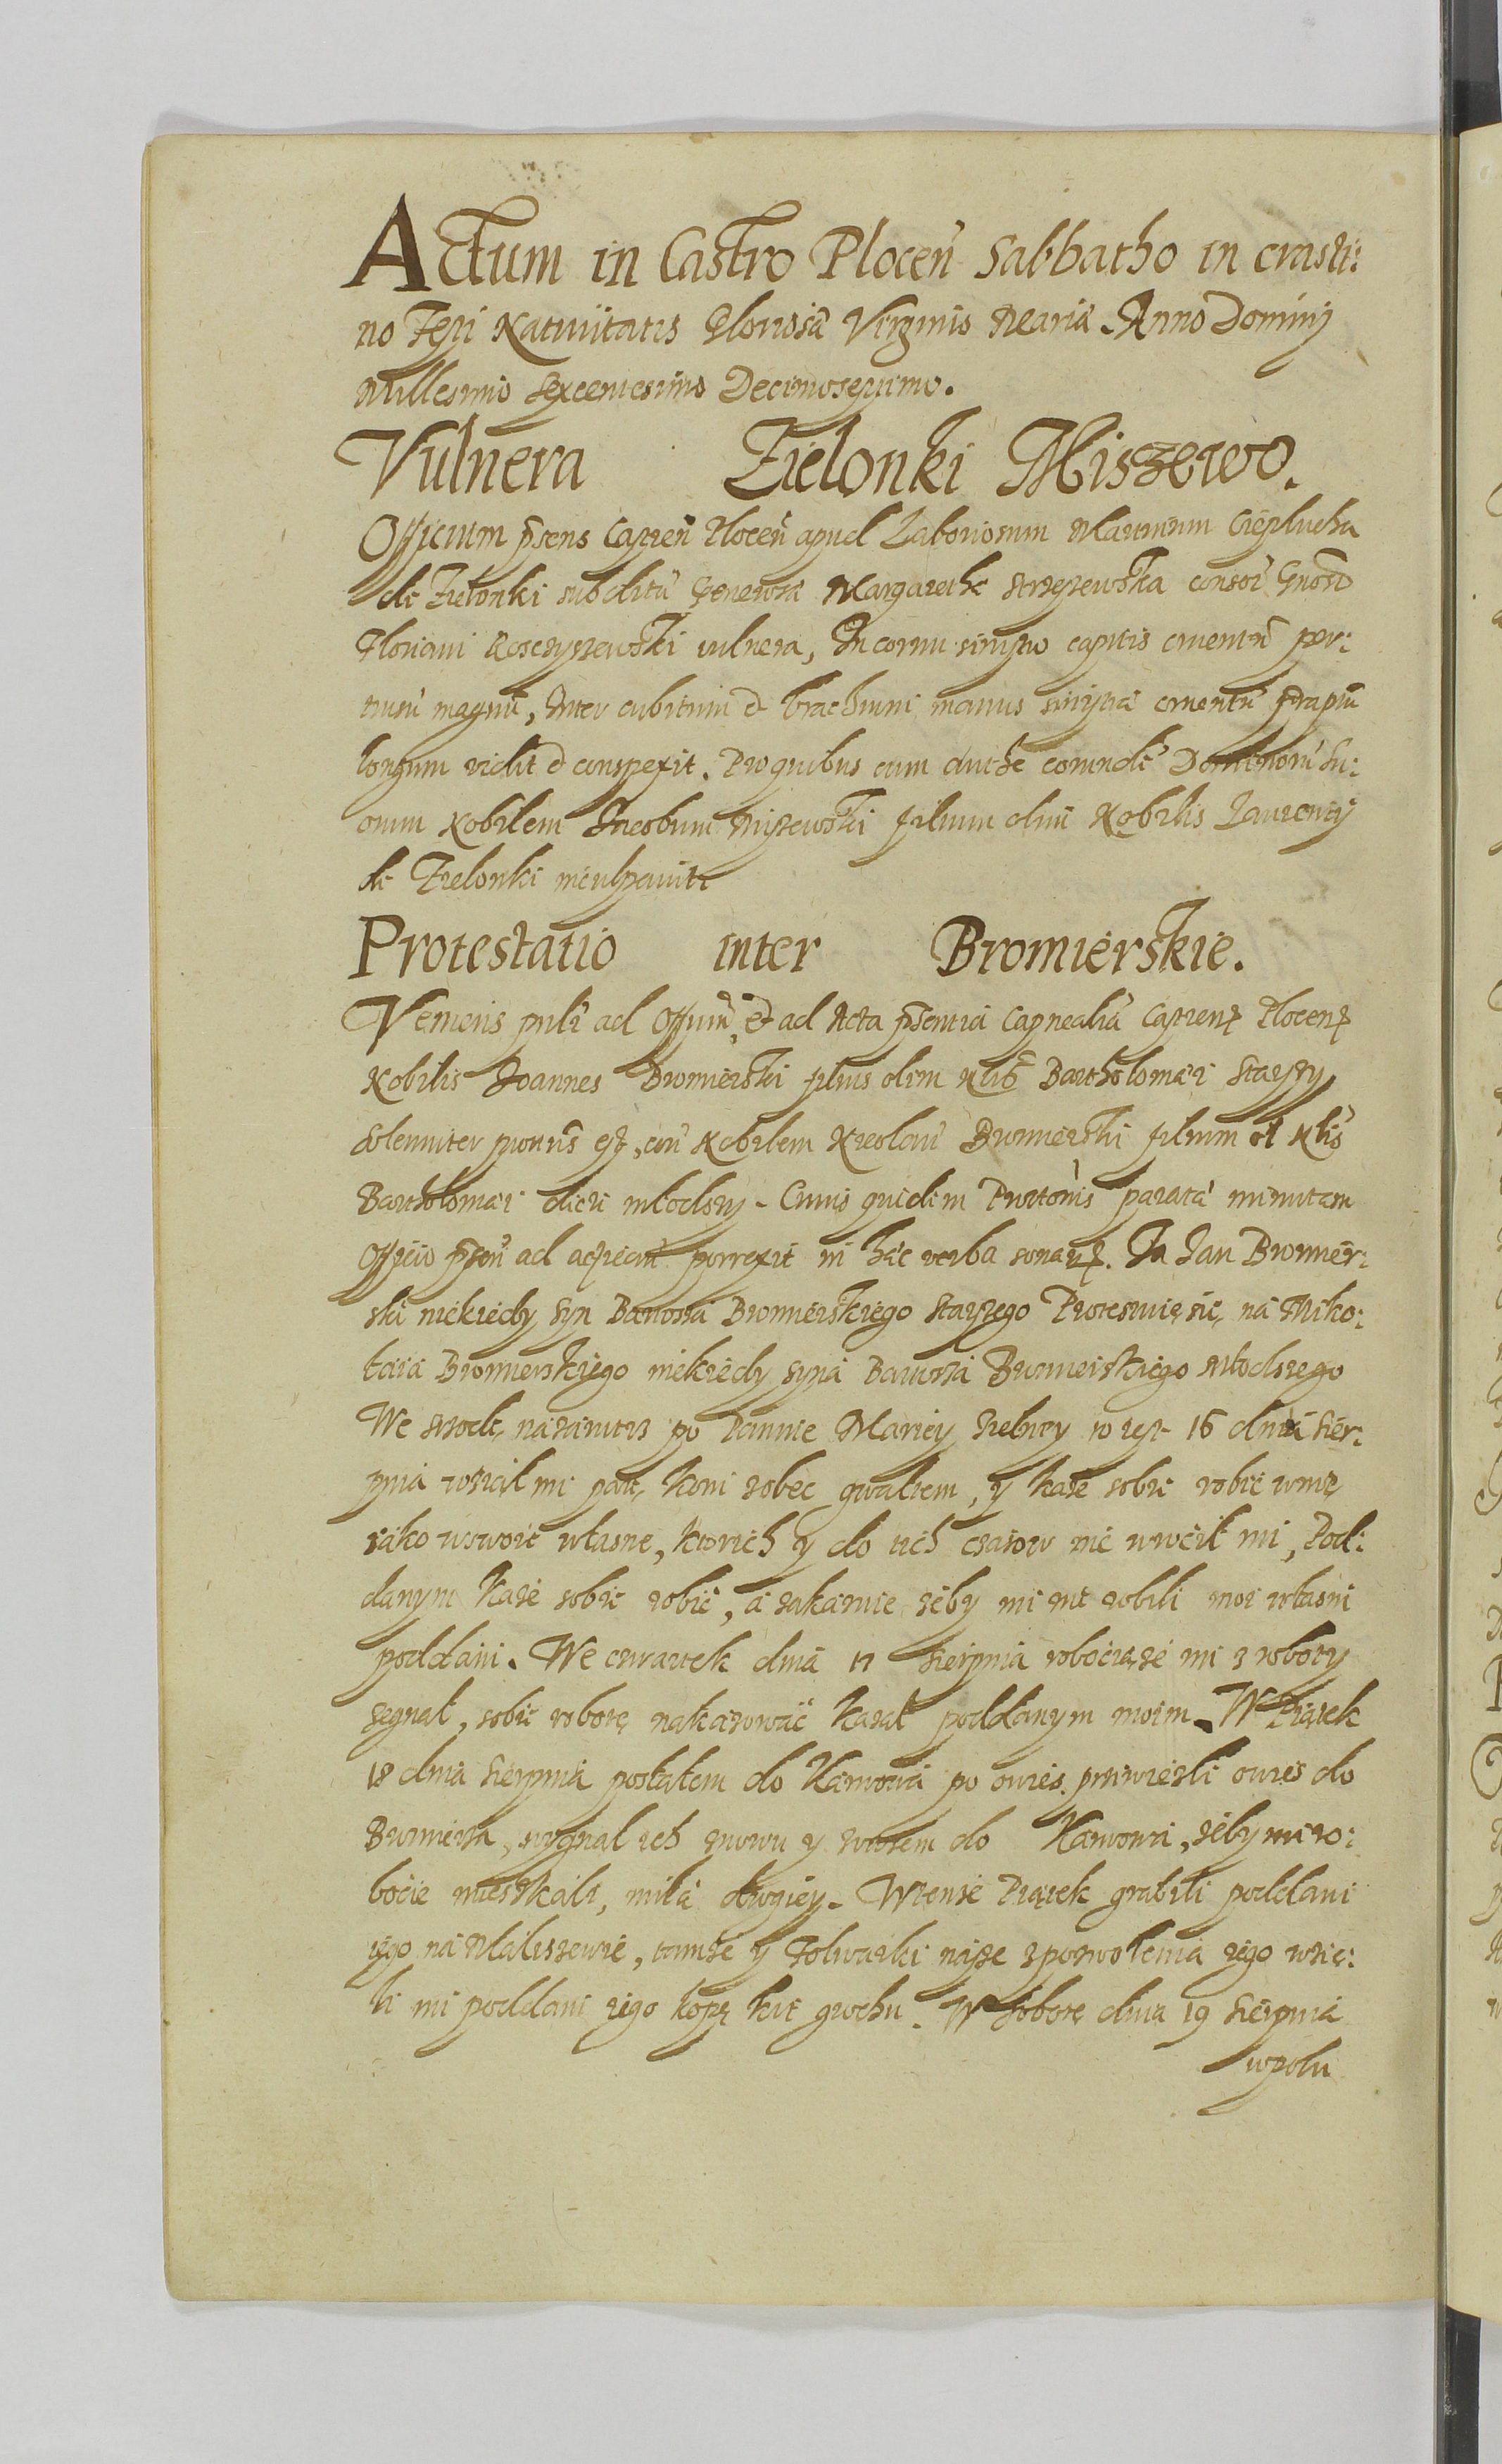 Actum in Castro Plocen̄ Sabbatho in crasti:
no Festi Natiuitatis Gloriosæ Virginis Mariæ. Anno Dominj
Millesimo Sexcentesimo Decimoseptimo.
Vulnera Zielonki Miszewo.
Officium pn̄s Capten̄ Plocen̄ apud Laboriosum Martinum Ciepłucha
de Zielonki subditū Generosæ Margarethæ consor̄ Gnosi
Floriani Kosczyszewski vulnera, In cornu sinistro capitis cruentū per:
magnū, Inter cubitum et brachium manus sinistræ cruentū
longum vidit et conspexit. Pro quibus cum Dominorū Su:
orum Nobilem Jacobum Miszewski filium olim Nobilis Laurentij
de Zielonki inculpauit
Protestatio inter Bromierskie.
Veniens ad Offium, et ad Acta pn̄sentia Capnealia Capten̄ Plocen̄
Nobilis Joannes Bromierski filius olim Nlis Bartholomæi Starszy
Solenniter est, con̄ Nobilem Nicolaū Bromierski filium ol Nlis
Bartholomæi dicti młodszy. Cuius quidem Prottōnis paratā minutam
Officio pn̄ti ad porrexit in hæc verba sonań. Ja Jan Bromier:
ski niekiedy syn Bartosza Bromierskiego Starszego Protestuię się, na Miko:
łaia Bromierskiego niekiedy syna Bartosza Bromierskiego Młodszego
We srzodę nazaiutrz po Pannie Mariey Zielney to iest 16 dnia Sier:
pnia wziął mi parę koni zobec gwałtem, y każe sobie robić niemi
iako w swoie własne, ktorich y do tich czasow nie wrocił mi, Pod:
danym każe sobie robić, a zakazuie żeby mi nie robili moi własni
poddani. We czwartek dnia 17 Sierpnia robociąże mi z roboty
zegnał, sobie robotę nakazować kazał poddanym moim. W Piątek
18 dnia Sierpnia posłałem do Karwowa po owies, przywiezli owies do
Bromierza, wygnał ich znowu y z wozem do Karwowa, żeby na ro:
bocie mieszkali, mila drogiey. W tenże Piątek grabili poddani
iego na Maliszewie, tamże y Folwarki nasze z pozwolenia iego wzię:
li mi poddani iego kopę kit grochu. W Sobotę dnia 19 Sierpnia
wpolu